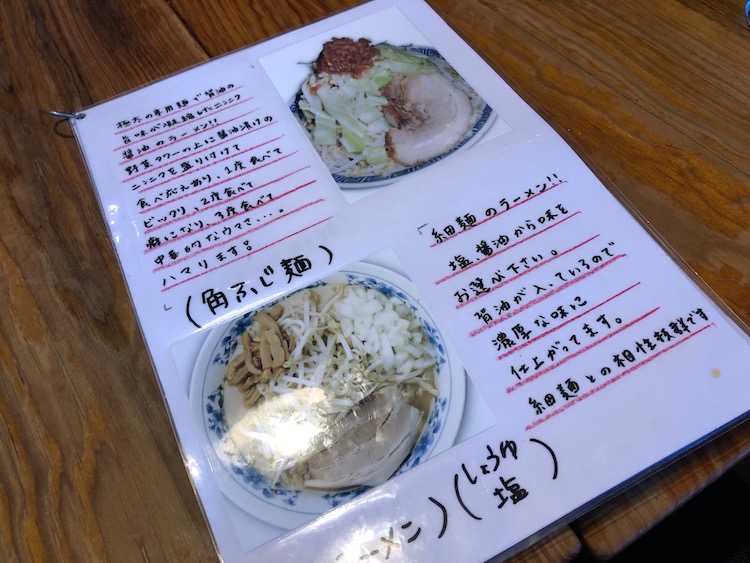 極太の専用麺で醤油の
旨味が凝縮したニンニク
醤油のラーメン!!
野菜タワーの上に醤油漬けの
ニンニクを盛り付けて
食べ応えあり、1度食べて
ビックリ、2度食べて
癖になり、3度食べて
中毒的なウマさ・・・。
ハマります。
」
(角ふじ麺)
「細麺のラーメン!!
塩 醤油から味を
お選び下さい。
背油が入っているので
濃厚な味に
仕上がってます。
細麺との相性抜群です
ーメン)(しょうゆ
塩)